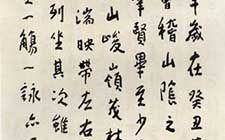 年歲在癸丑
會稽山陰之
羣賢畢至少
山峻嶺茂林
湍映帶左右
列坐其次雖
一觴一詠亦